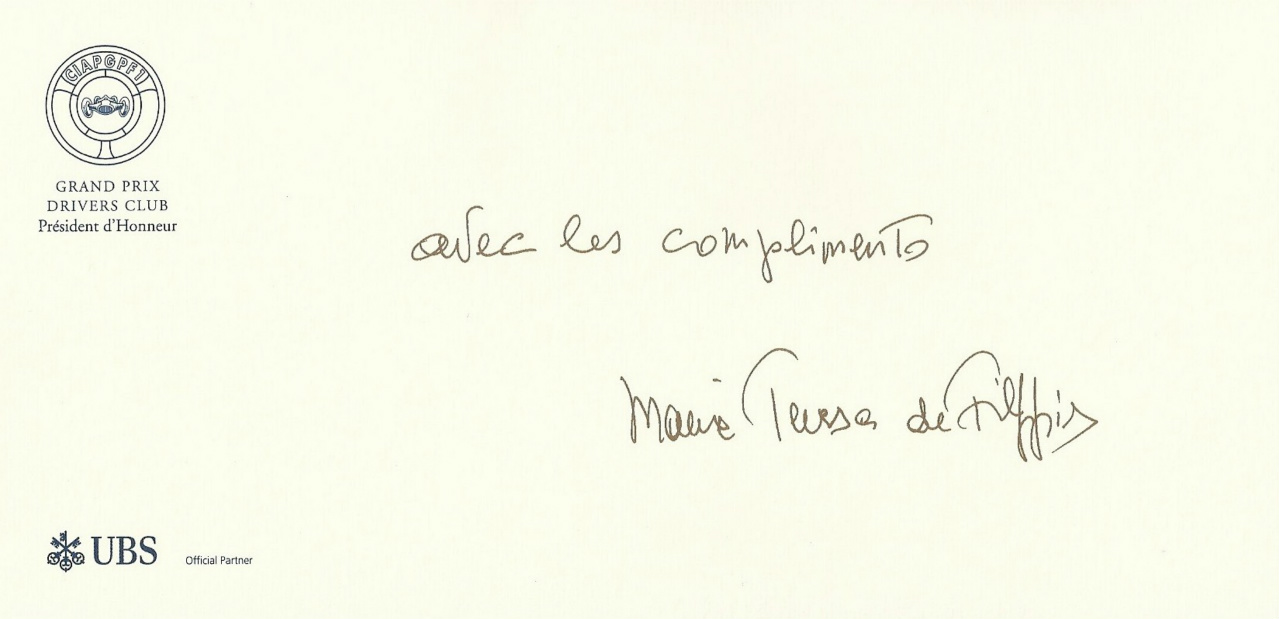 CIAPGPF1
GRAND PRIX
DRIVERS CLUB
Président d'Honneur
avec les complimento
Maria Teresa de Filippis
UBS
Official Partner